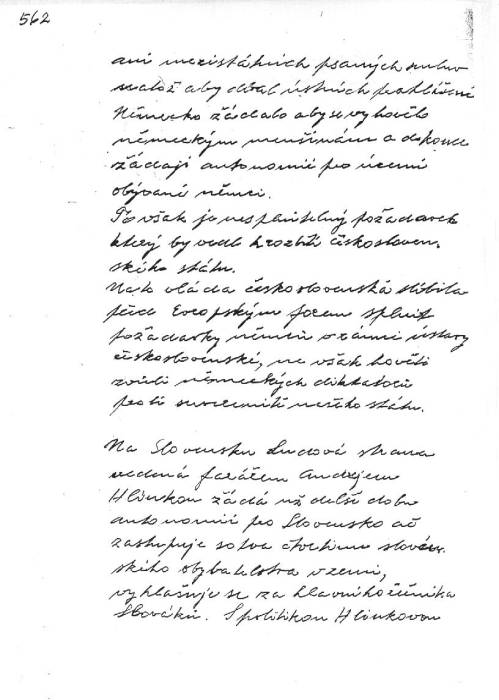 562
ani mezistátních psaných smluv
natož aby dbal ústních prohlášení
Německo žádalo aby se vyhovělo
německým menšinám a dokonce
žádají autonomii pro území
obývané němci.
To však je nesplnitelný požadavek
který by vedl k rozbití českosloven-
ského státu.
Na to vláda československá slíbila
před Evropským forem splnit
požadavky němců v rámci ústavy
československé, ne však hověti
zvůli německých diktátorů
proti suverenitě našeho státu.
Na Slovensku Ludová strana
vedená farářem Andrejem
Hlinkou žádá už delší dobu
autonomii pro Slovensko ač
zastupuje sotva čtvrtinu sloven-
ského obyvatelstva v zemi,
vyhlašuje se za hlavního činitele
Slováků. S politikou Hlinkovou